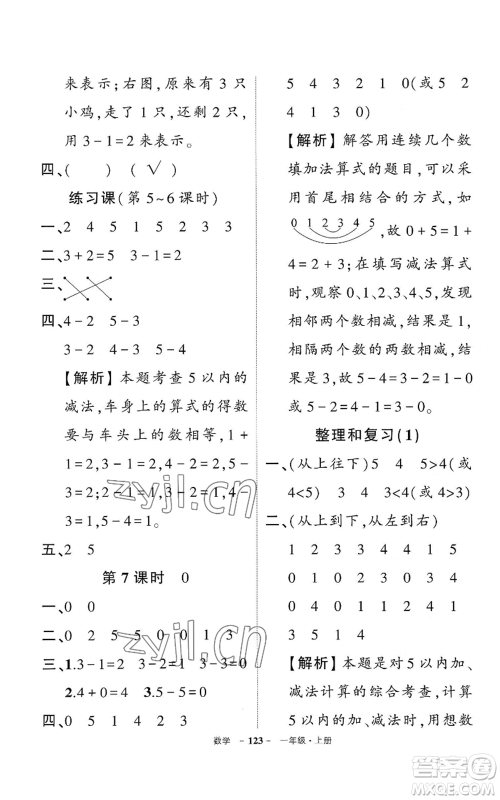 来表示；右图，原来有 3 只
小鸡，走了 1 只，还剩 2 只，
用 3－1＝2 来表示。
四、(　　)　(　√　)
练习课(第 5～6 课时)
一、2　4　5　1　5　2　3　3
二、3＋2＝5　3－1＝2
三、
四、4－2　5－3
3－2　3－1　5－4
【解析】本题考查 5 以内的
减法，车身上的算式的得数
要与车头上的数相等，1＋
1＝2，3－1＝2，4－2＝2，5－
3＝2；2－1＝1，3－2＝1，4－
3＝1，5－4＝1。
五、2　5
第 7 课时　0
一、0　0
二、0　2　5　5　0　0　1　3
三、1.3－1＝2　3－2＝1　3－3＝0
2.4＋0＝4　3.5－5＝0
四、0　2　1　2　3　4
5　4　3　2　1　0(或 5　2
4　1　3　0)
【解析】解答用连续几个数
填加法算式的题目，可以采
用首尾相结合的方式，如
0　1　2　3　4　5
，故 0＋5＝1＋
4＝2＋3；在填写减法算式
时，观察 0、1、2、3、4、5，当
相邻两个数相减，结果是 1，
相隔两个数相减，结果是 3，
故 5－4＝3－2＝1－0
或 5－2＝4－1＝3－0。
整理和复习(1)
一、(从上往下)5　4　5>4(或
4<5)　3　4　3<4(或 4>3)
二、(从上到下，从左到右)
1　2　3　1　3　4　4　1
5　1　2　5　2　3　4　5
0　0　0　0　0　0　1　2
3　5　1　4
【解析】本题是对 5 以内加、
减法计算的综合考查，计算
加、减法时，可以用想数
数学　－ 123 －　一年级·上册
zyjl.cn
zyjl.cn
答案圈
MXQE.COM